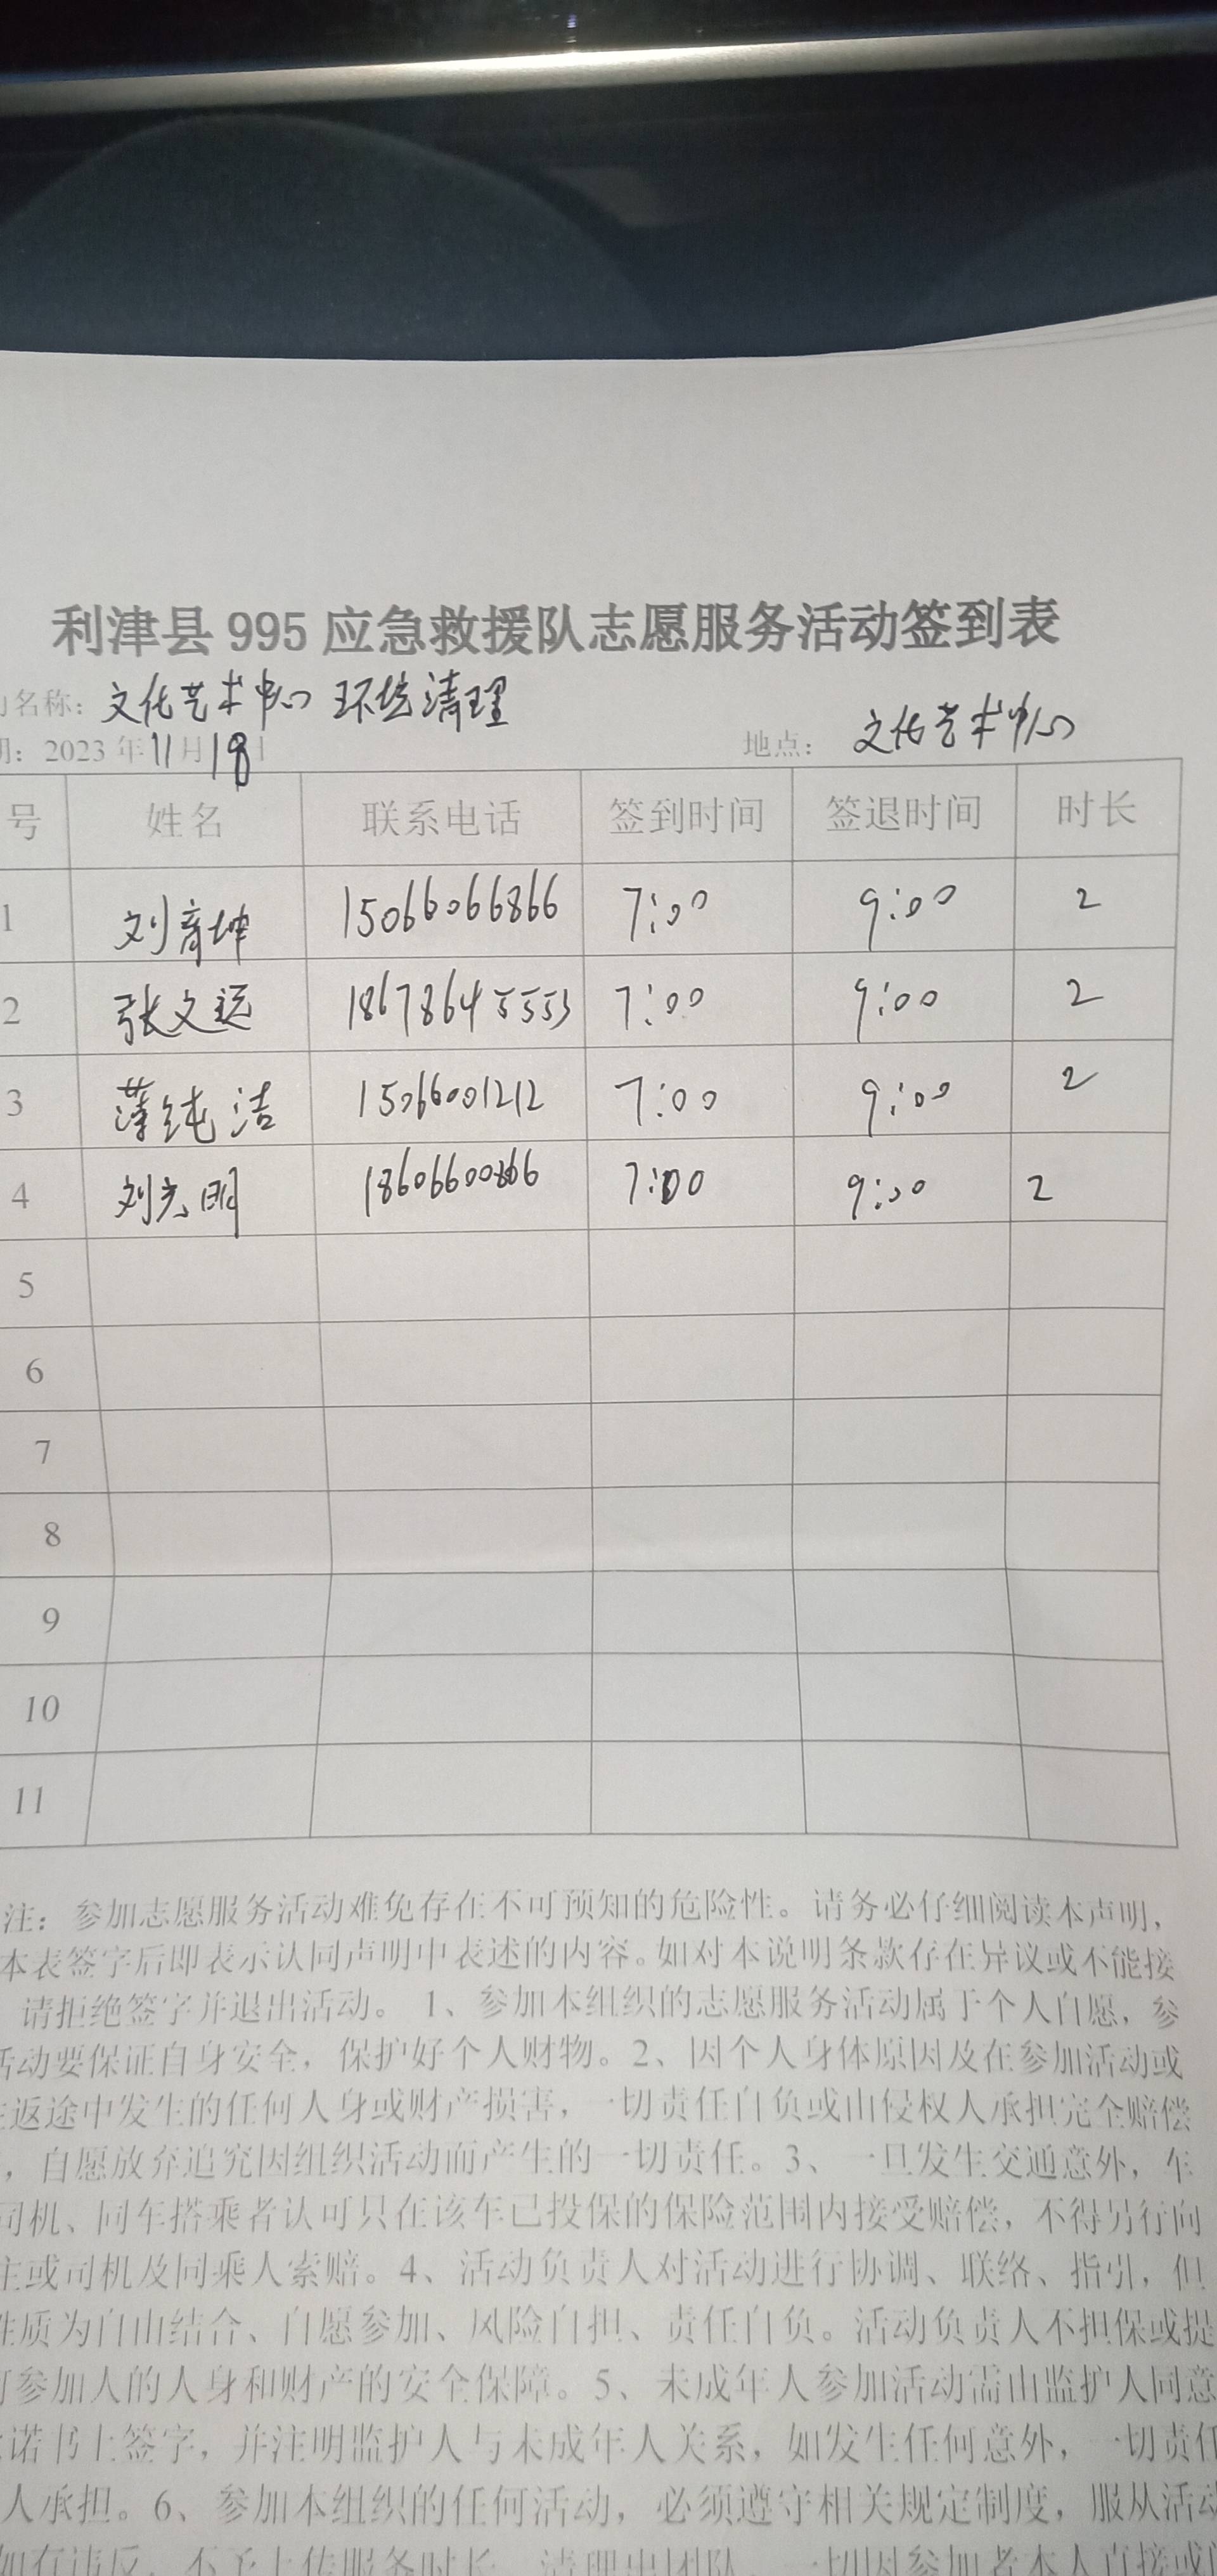 利津县995应急救援队志愿服务活动签到表
名称：文化艺术中心 环境清理
期：2023年11月18日 地点：文化艺术中心
号 姓名 联系电话 签到时间 签退时间 时长
1 刘育坤 15066066866 7:00 9:00 2
2 张文远 18678645553 7:00 9:00 2
3 薄纯洁 15066001212 7:00 9:00 2
4 刘光明 7:00 9:00 2
5
6
7
8
9
10
11
注：参加志愿服务活动难免存在不可预知的危险性。请务必仔细阅读本声明，
本表签字后即表示认同声明中表述的内容。如对本说明条款存在异议或不能接
请拒绝签字并退出活动。1、参加本组织的志愿服务活动属于个人自愿，参
活动要保证自身安全，保护好个人财物。2、因个人身体原因及在参加活动或
返途中发生的任何人身或财产损害，一切责任自负或由侵权人承担完全赔偿
，自愿放弃追究因组织活动而产生的一切责任。3、一旦发生交通意外，车
司机、同车搭乘者认可只在该车已投保的保险范围内接受赔偿，不得另行向
主或司机及同乘人索赔。4、活动负责人对活动进行协调、联络、指引，但
性质为自由结合、自愿参加、风险自担、责任自负。活动负责人不担保或提
参加人的人身和财产的安全保障。5、未成年人参加活动需由监护人同意
诺书上签字，并注明监护人与未成年人关系，如发生任何意外，一切责任
人承担。6、参加本组织的任何活动，必须遵守相关规定制度，服从活动
如有违反，不予上传服务时长，清理出团队，一切因参加者本人直接或